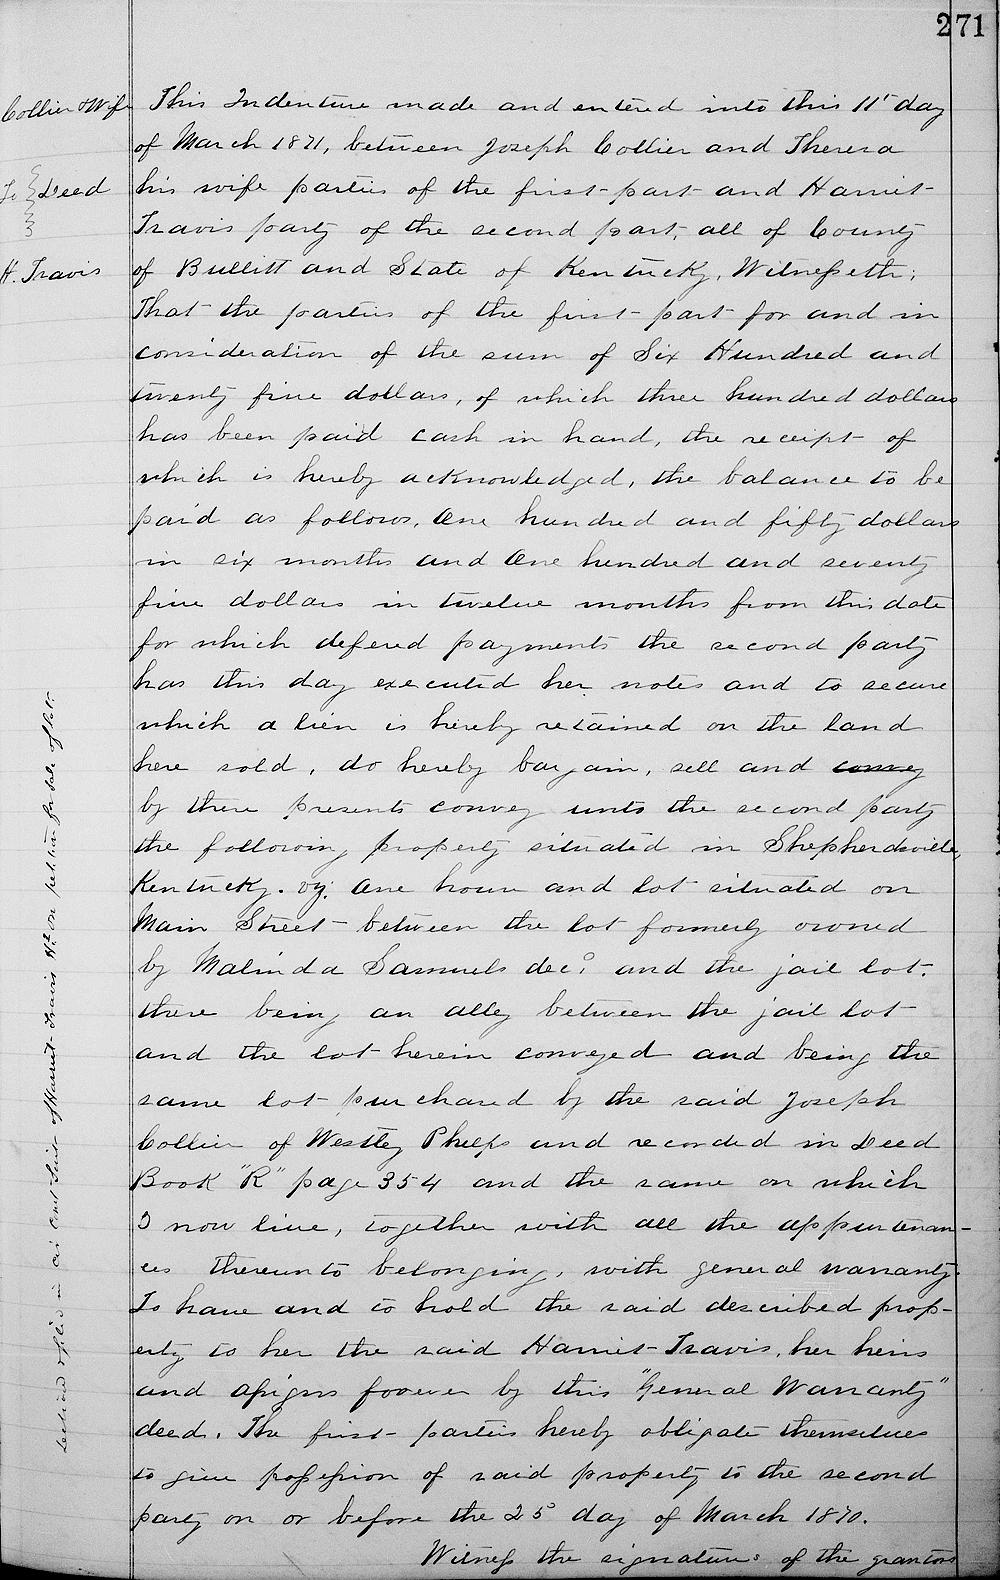 271
Collier & Wife
To } Deed
H. Travis
This Indenture made and entered into this 11" day
of March 1871, between Joseph Collier and Theresa
his wife parties of the first part and Harriet
Travis party of the second part, all of County
of Bullitt and State of Kentucky, Witnesseth;
That the parties of the first part for and in
consideration of the sum of Six Hundred and
twenty five dollars, of which three hundred dollars
has been paid cash in hand, the receipt of
which is hereby acknowledged, the balance to be
paid as follows, One hundred and fifty dollars
in six months and One hundred and seventy
five dollars in twelve months from this date
for which defered payments the second party
has this day executed her notes and to secure
which a lien is hereby retained on the land
here sold, do hereby bargain, sell and convey
by these presents convey unto the second party
the following property situated in Shepherdsville,
Kentucky. viz: One house and lot situated on
Main Street between the lot formerly owned
by Malinda Samuels decd and the jail lot.
there being an alley between the jail lot
and the lot herein conveyed and being the
same lot purchased by the said Joseph
Collier of Westley Phelps and recorded in Deed
Book "R" page 354 and the same on which
I now live, together with all the appurtenan-
ces thereunto belonging, with general warranty.
To have and to hold the said described prop-
erty to her the said Harriet Travis, her heirs
and assigns forever by this "General Warranty"
deed. The first parties hereby obligate themselves
to give possession of said property to the second
party on or before the 25 day of March 1870.
Witness the signatures of the grantors
filed in Cir Court Suit of Harriet Travis on petition for sale of lot